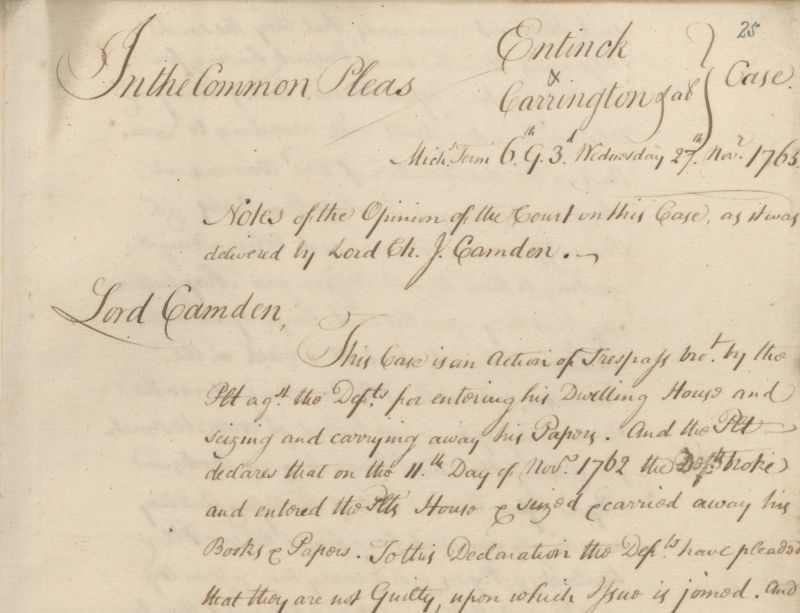 25
In the Common Pleas
Entinck
&
Carrington & al̃
Case.
Mich.s Term 6.th G. 3.d Wednesday 27.th Nov.r 1765.
Notes of the Opinion of the Court on this Case, as it was
delivered by Lord Ch. J. Camden.
Lord Camden,
This Case is an Action of Trespass bro.t by the
Plt ag.st the Def.ts for entering his Dwelling House and
seizing and carrying away his Papers. And the Plt
declares that on the 11.th Day of Nov.r 1762 the Def.ts broke
and entered the Plts' House & seized & carried away his
Books & Papers. To this Declaration the Def.ts have pleaded
that they are not Guilty, upon which Issue is joined. And